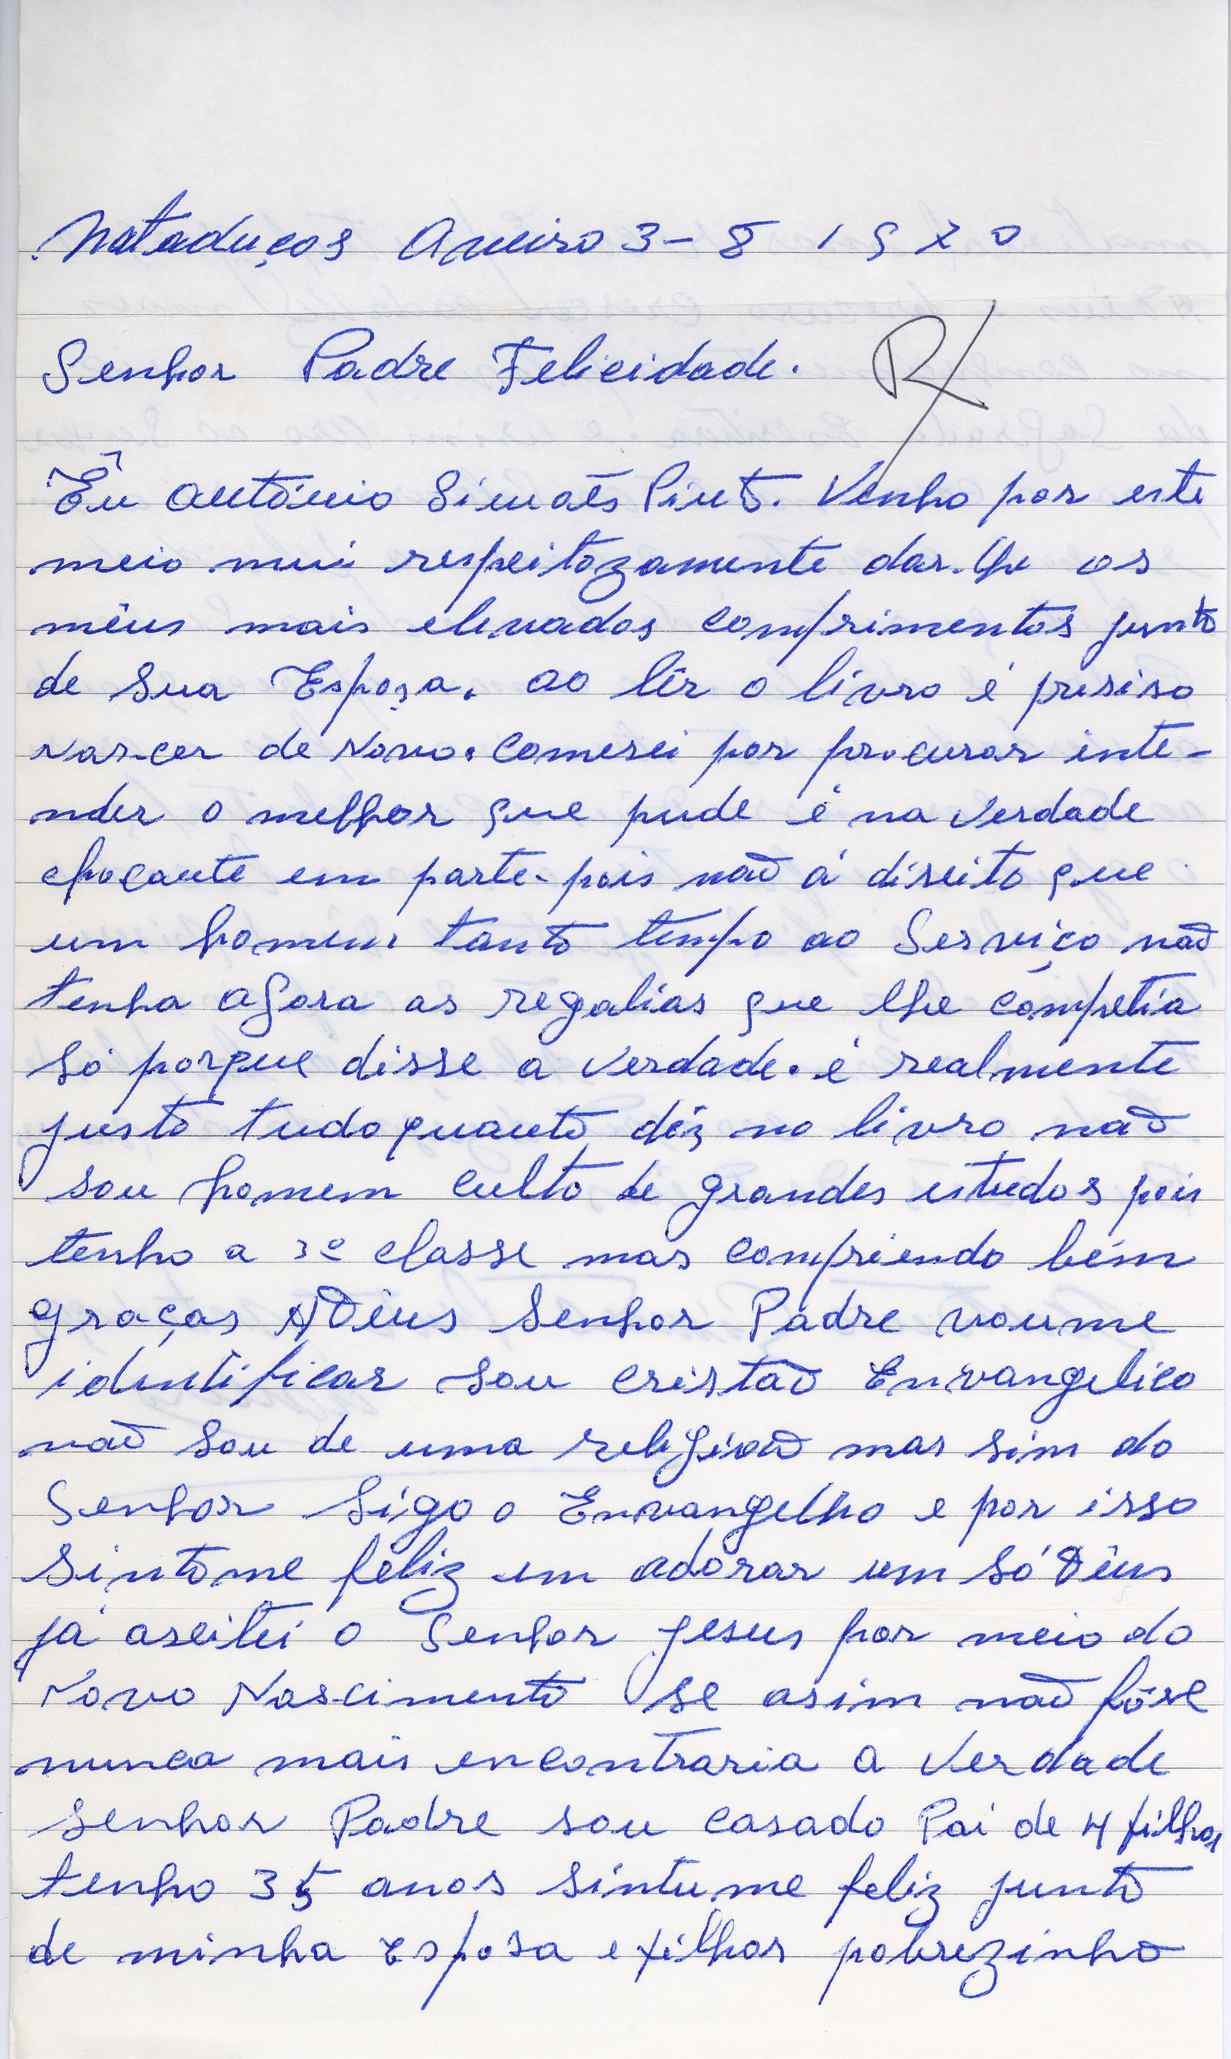 Mataduços Aveiro 3-8 1970
Senhor Padre Felicidade. R
Êu António Simoẽs Pinto. Venho por este
meio mui respeitozamente dar-lhe os
mêus mais elevados comprimentos junto
de Sua Esposa. ao lêr o livro é presiso
nas-cer de novo. comesei por procurar inte-
nder o melhor que pude é na verdade
choçante em parte- pois naõ á direito que
um homem tanto tempo ao Serviço naõ
tenha agora as regalias que lhe competia
Só porque disse a verdade. é realmente
justo tudo quanto diz no livro naõ
sou homem culto de grandes estudos pois
tenho a 3ª classe mas compriendo bém
graças A Dêus Senhor Padre voume
identificar sou cristaõ Envangelico
naõ Sou de uma religiaõ mas sim do
Senhor Sigo o Envangelho e por isso
Sintome feliz em adorar um Só Dêus
já aseitei o Senhor Jesus por meio do
Novo Nas-cimento se asim naõ fôse
nunca mais encontraria a Verdade
Senhor Padre sou casado Pai de 4 filhos
tenho 35 anos Sintume feliz junto
de minha Esposa e filhos pobrezinho